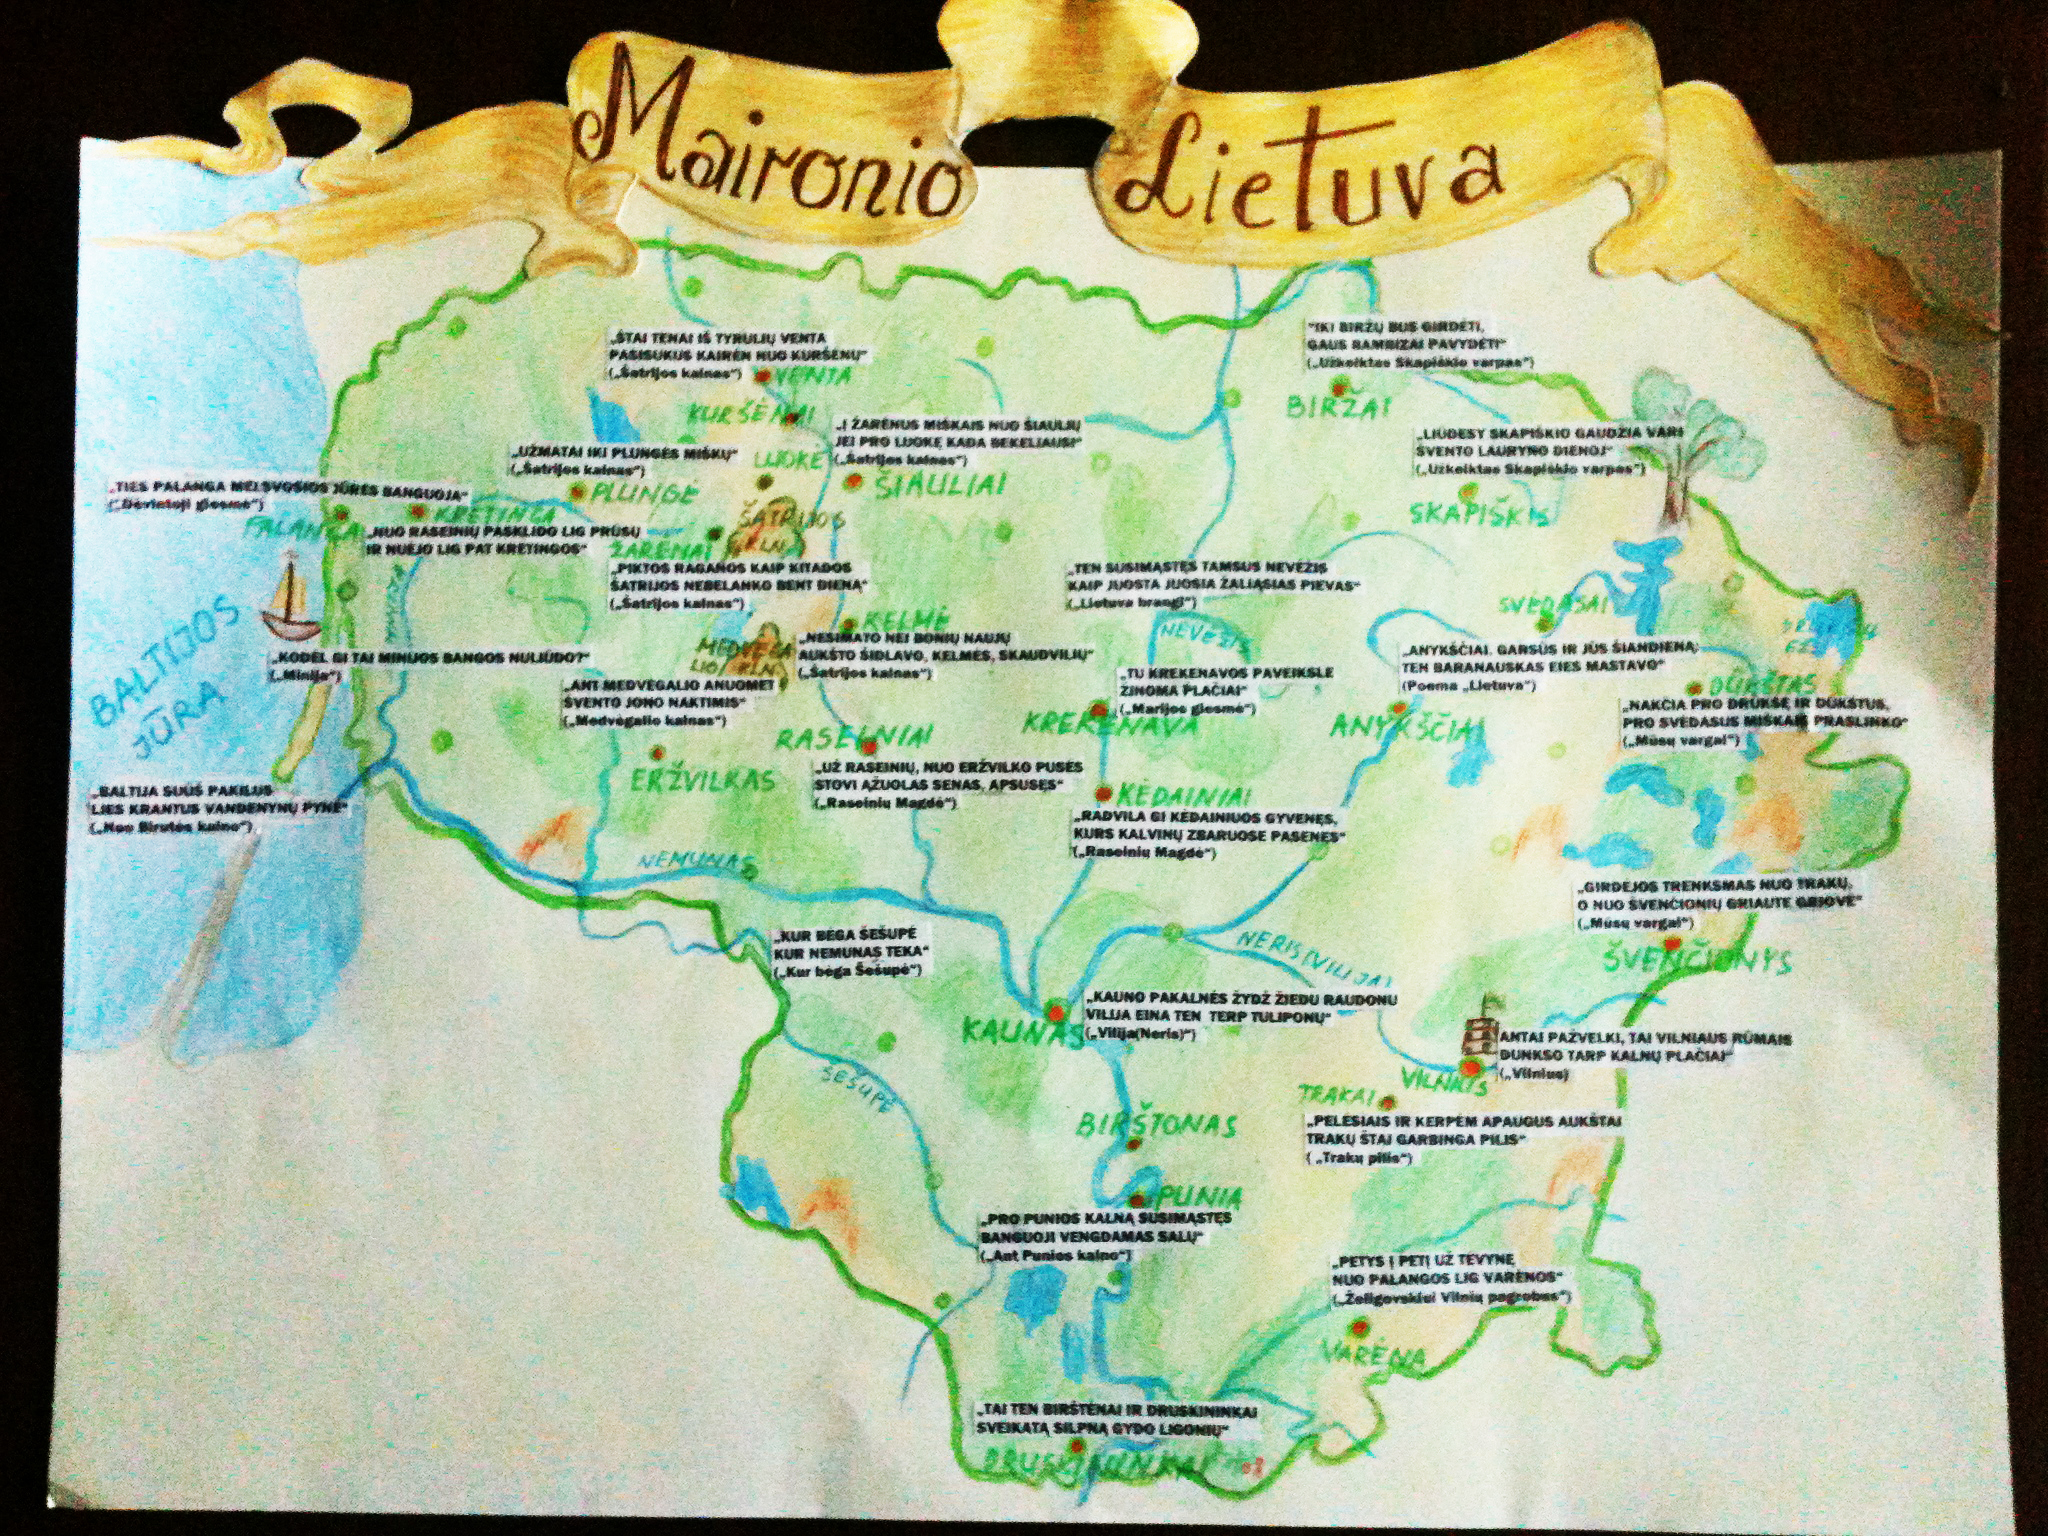 Maironio Lietuva
„ŠTAI TENAI IŠ TYRULIŲ VENTA
PASISUKUS KAIRĖN NUO KURŠĖNŲ“
(„Šatrijos kalnas“)
VENTA
KURŠĖNAI
"IKI BIRŽŲ BUS GIRDĖTI,
GAUS BAMBIZAI PAVYDĖTI"
(„Užkeiktas Skapiškio varpas“)
BIRŽAI
„Į ŽARĖNUS MIŠKAIS NUO ŠIAULIŲ
JEI PRO LUOKĘ KADA BEKELIAUSI“
(„Šatrijos kalnas“)
LUOKĖ
ŠIAULIAI
„UŽMATAI IKI PLUNGĖS MIŠKŲ“
(„Šatrijos kalnas“)
PLUNGĖ
„LIŪDESY SKAPIŠKIO GAUDŽIA VARI
ŠVENTO LAURYNO DIENOJ“
(„Užkeiktas Skapiškio varpas“)
SKAPIŠKIS
„TIES PALANGA MELSVOSIOS JŪRĖS BANGUOJA“
(„Devintoji giesmė“)
PALANGA
KRETINGA
„NUO RASEINIŲ PASKLIDO LIG PRŪSŲ
IR NUĖJO LIG PAT KRETINGOS“
ŽARĖNAI
ŠATRIJOS
KLN.
„PIKTOS RAGANOS KAIP KITADOS
ŠATRIJOS NEBELANKO BENT DIENĄ“
(„Šatrijos kalnas“)
„TEN SUSIMĄSTĘS TAMSUS NEVĖŽIS
KAIP JUOSTA JUOSIA ŽALIĄSIAS PIEVAS“
(„Lietuva brangi“)
NEVĖŽIS
SVĖDASAI
BALTIJOS
JŪRA
MINIJA
KELMĖ
„NESIMATO NEI BONIŲ NAUJŲ
AUKŠTO ŠIDLAVO, KELMĖS, SKAUDVILIŲ“
(„Šatrijos kalnas“)
MEDVĖGA
LIO KLN.
„KODĖL GI TAI MINIJOS BANGOS NULIŪDO?“
(„Minija“)
„ANT MEDVĖGALIO ANUOMET
ŠVENTO JONO NAKTIMIS“
(„Medvėgalio kalnas“)
„ANYKŠČIAI, GARSŪS IR JŪS ŠIANDIENĄ;
TEN BARANAUSKAS EIĖS MASTAVO“
(Poema „Lietuva“)
ANYKŠČIAI
„TU KREKENAVOS PAVEIKSLE
ŽINOMA PLAČIAI“
(„Marijos giesmė“)
KREKENAVA
DŪKŠTAS
„NAKČIA PRO DRŪKŠĘ IR DŪKŠTUS,
PRO SVĖDASUS MIŠKAIS PRASLINKO“
(„Mūsų vargai“)
RASEINIAI
ERŽVILKAS
„UŽ RASEINIŲ, NUO ERŽVILKO PUSĖS
STOVI ĄŽUOLAS SENAS, APSUSĘS“
(„Raseinių Magdė“)
KĖDAINIAI
„RADVILA GI KĖDAINIUOS GYVENĘS,
KURS KALVINŲ ZBARUOSE PASENĘS“
(„Raseinių Magdė“)
„BALTIJA SŪŪŠ PAKILUS
LIES KRANTUS VANDENYNŲ PYNE“
(„Nuo Birutės kalno“)
NEMUNAS
„GIRDĖJOS TRENKSMAS NUO TRAKŲ,
O NUO ŠVENČIONIŲ GRIAUTĖ GRIOVĖ“
(„Mūsų vargai“)
ŠVENČIONYS
„KUR BĖGA ŠEŠUPĖ
KUR NEMUNAS TEKA“
(„Kur bėga Šešupė“)
NERIS (VILIJA)
„KAUNO PAKALNĖS ŽYDŽ ŽIEDU RAUDONU
VILIJA EINA TEN TERP TULIPONŲ“
(„Vilija(Neris)“)
KAUNAS
ANTAI PAŽVELKI, TAI VILNIAUS RŪMAIS
DUNKSO TARP KALNŲ PLAČIAI“
(„Vilnius)
VILNIUS
ŠEŠUPĖ
TRAKAI
„PELĖSIAIS IR KERPĖM APAUGUS AUKŠTAI
TRAKŲ ŠTAI GARBINGA PILIS“
( „Trakų pilis“)
BIRŠTONAS
PUNIA
„PRO PUNIOS KALNĄ SUSIMĄSTĘS
BANGUOJI VENGDAMAS SALŲ“
(„Ant Punios kalno“)
„PETYS Į PETĮ UŽ TĖVYNĘ
NUO PALANGOS LIG VARĖNOS“
(„Želigovskiui Vilnių pagrobus“)
VARĖNA
„TAI TEN BIRŠTĖNAI IR DRUSKININKAI
SVEIKATĄ SILPNĄ GYDO LIGONIŲ“
DRUSKININKAI